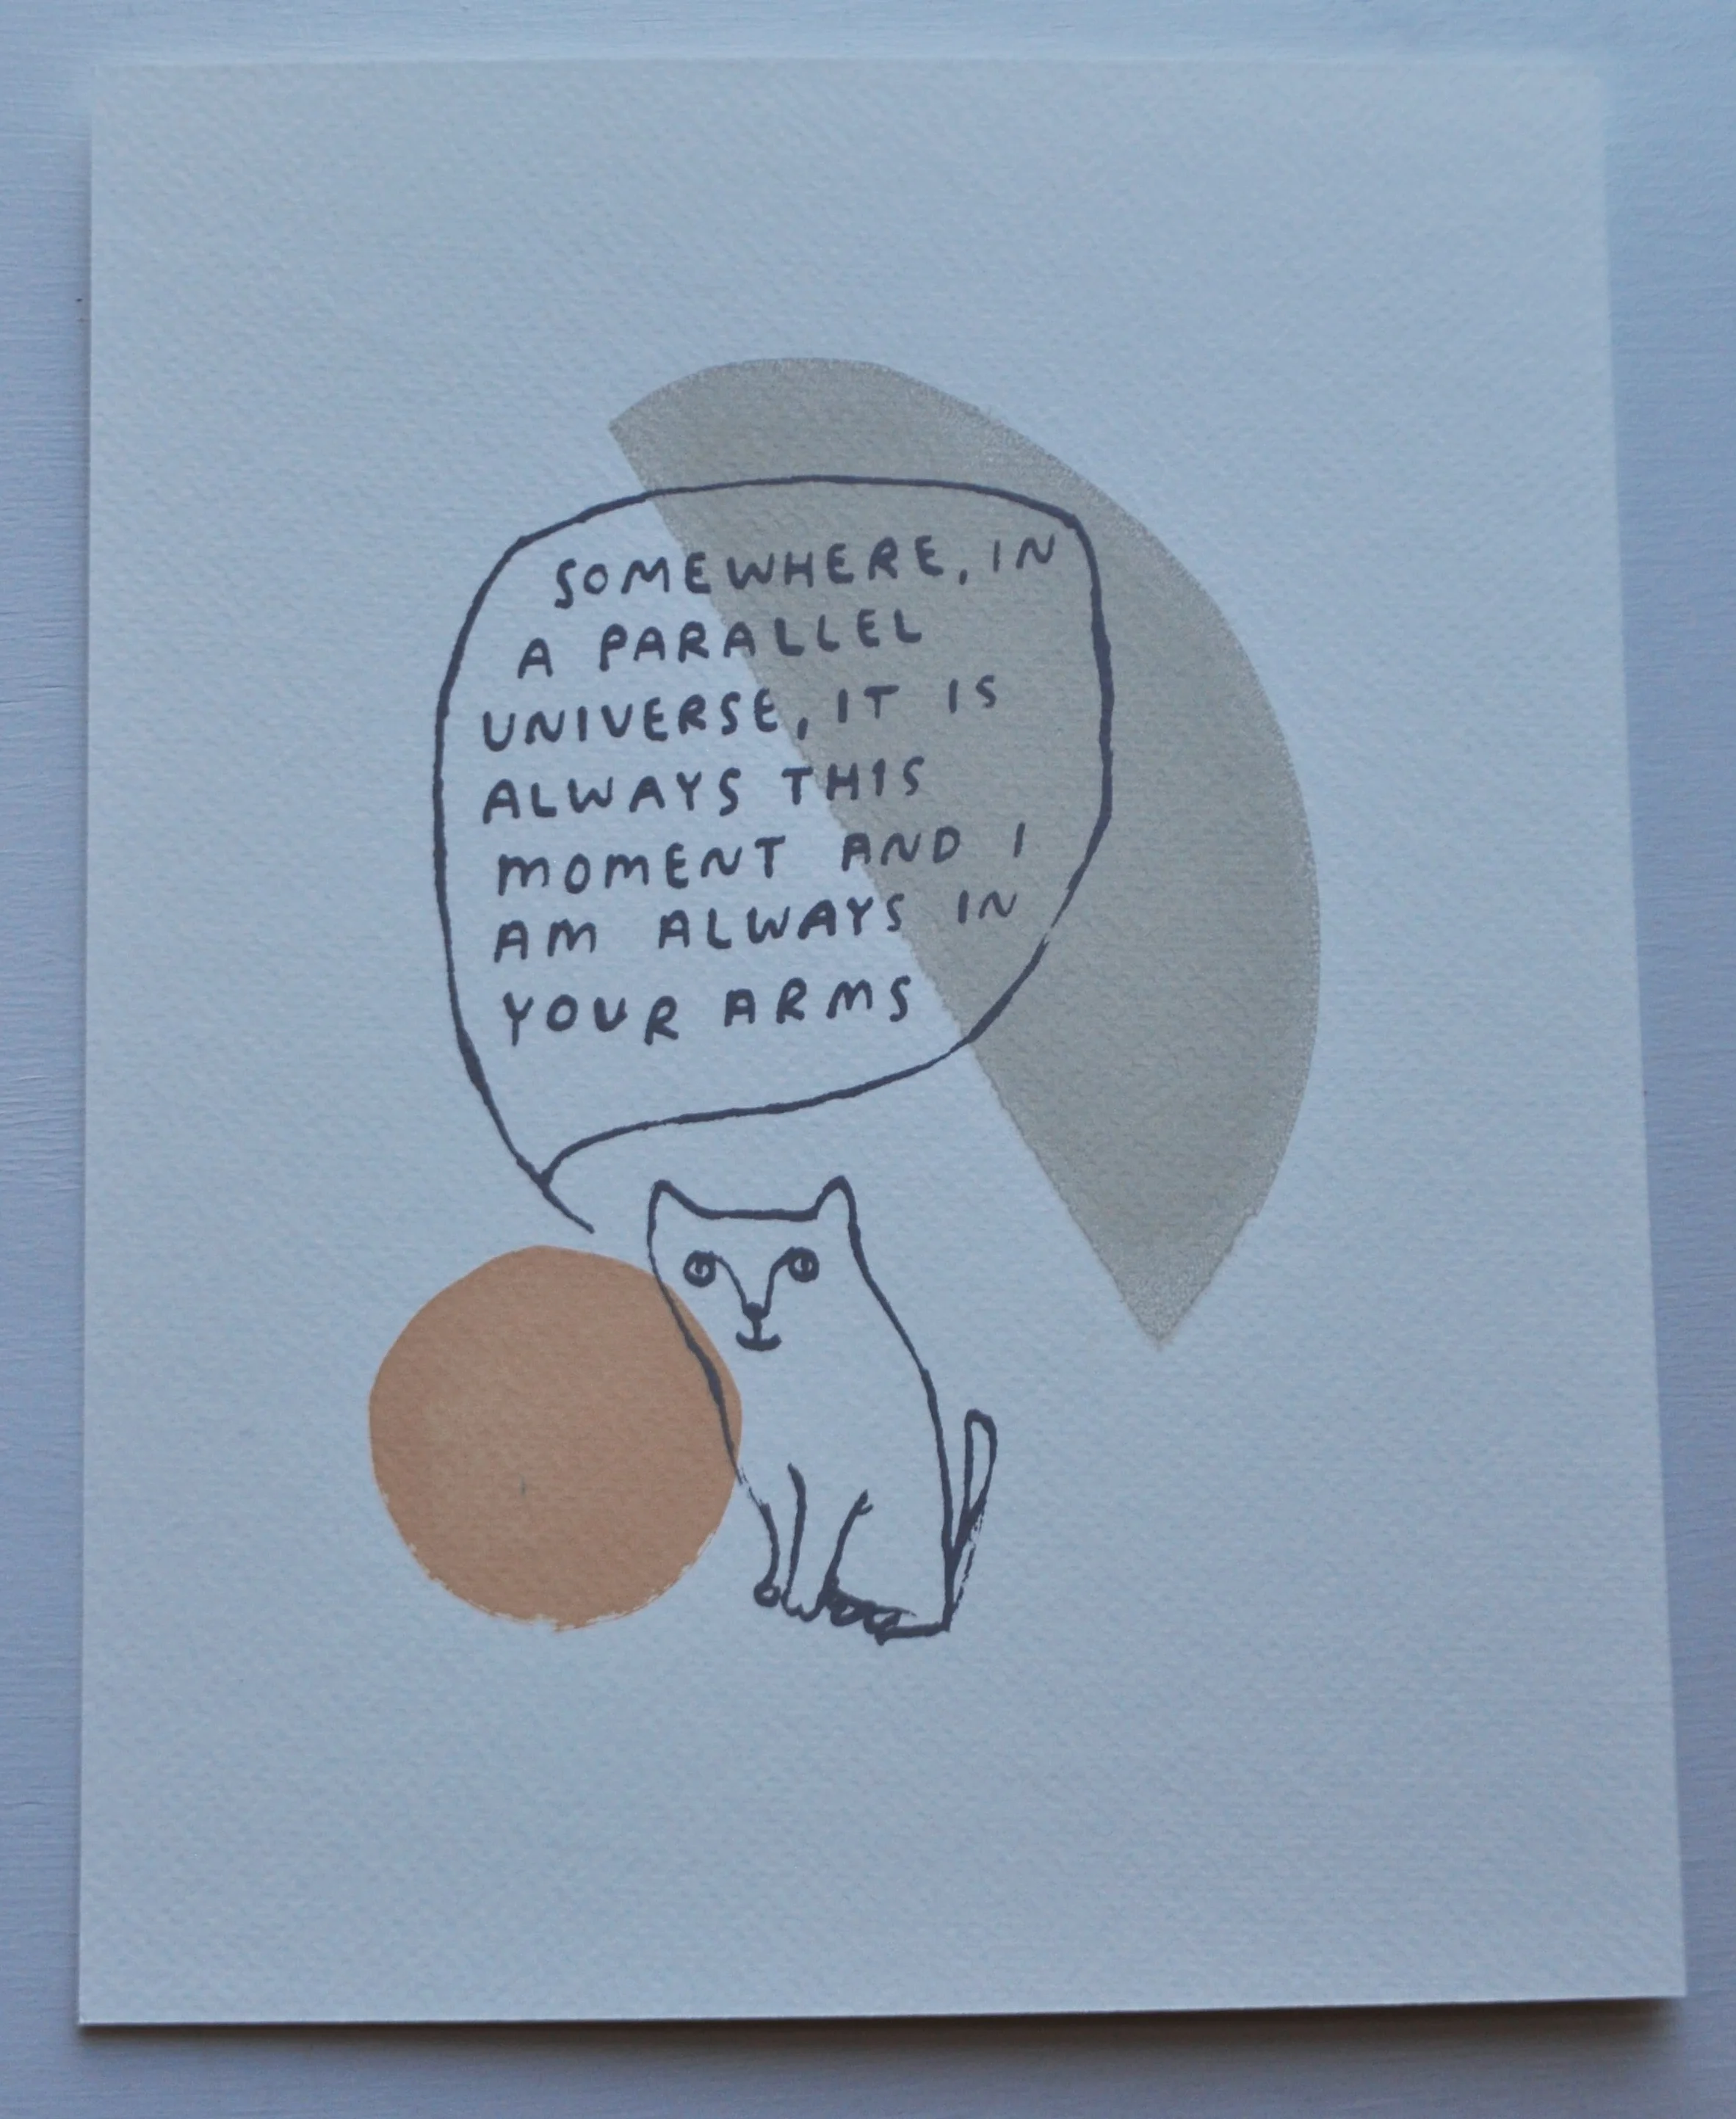 SOMEWHERE, IN
A PARALLEL
UNIVERSE, IT IS
ALWAYS THIS
MOMENT AND I
AM ALWAYS IN
YOUR ARMS